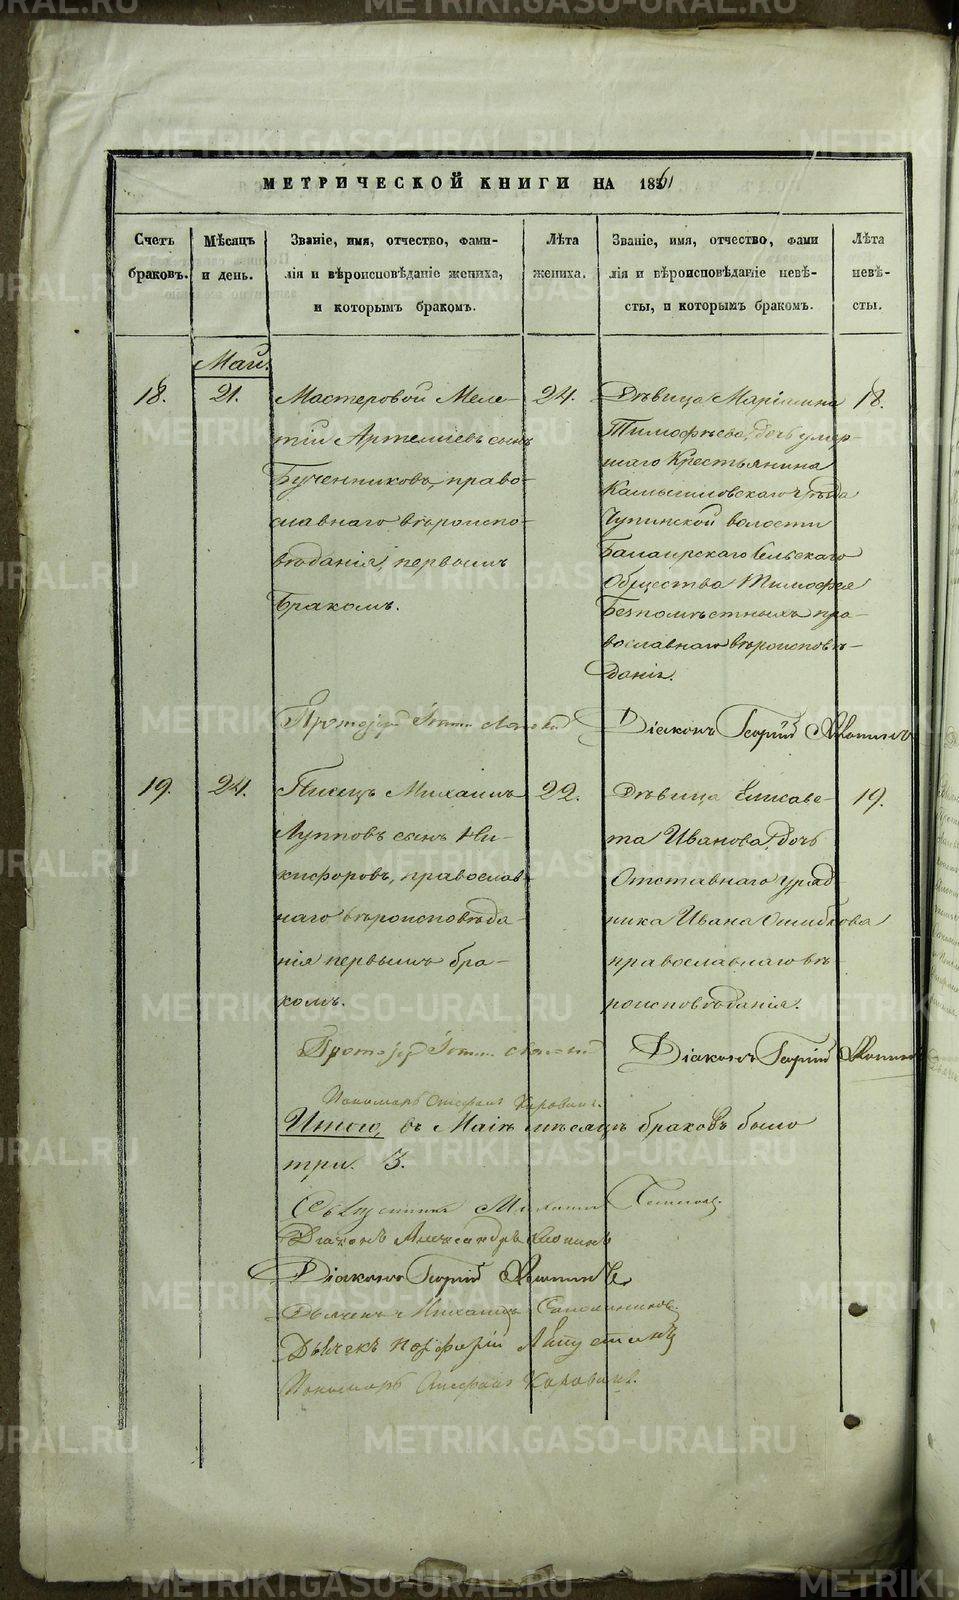 МЕТРИЧЕСКОЙ КНИГИ НА 1861
Счетъ браковъ.
Мѣсяцъ и день.
Званіе, имя, отчество, фами-
лія и вѣроисповѣданіе жениха,
и которымъ бракомъ.
Лѣта жениха.
Званіе, имя, отчество, фами
лія и вѣроисповѣданіе невѣ-
сты, и которымъ бракомъ.
Лѣта невѣ-
сты.
Маій.
18.
21.
Мастеровой Меле-
тій Артеміевъ сынъ
Бученниковъ, право-
славнаго вѣроиспо-
вѣданія, первымъ
бракомъ.
24.
Дѣвица Маріамна
Тимофѣева, дочь умер-
шаго Крестьянина
Камышловскаго уѣзда
Чупинской волости
Сельскаго
Общества Тимофея
Безпомѣстныхъ пра-
вославнаго вѣроисповѣ-
данія.
18.
Протоіерей
Діаконъ Георгій
19.
24.
Писецъ Михаилъ
Лупповъ сынъ Ни-
кифоровъ, православ-
наго вѣроисповѣда-
нія первымъ бра-
комъ.
22.
Дѣвица Елисаве-
та Иванова, дочь
Отставнаго уряд-
ника Ивана Ошибкова
православнаго вѣ-
роисповѣданія.
19.
Протоіерей
Діаконъ Георгій
Пономарь Стефанъ
Итого, въ Маіѣ мѣсяцѣ браковъ было
три. 3.
Священникъ
Діаконъ Александръ
Діаконъ Георгій
Дьячекъ Михаилъ
Дьячекъ Порфирій
Пономарь Стефанъ
METRIKI.GASO-URAL.RU